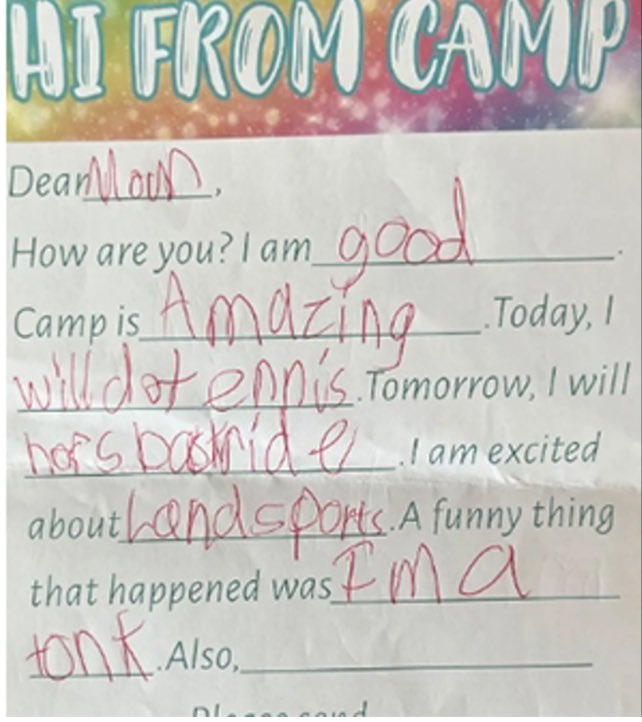 HI FROM CAMP
Dear Mom,
How are you? I am good.
Camp is Amazing. Today, I
will do tennis. Tomorrow, I will
hors bask ride. I am excited
about Land sports. A funny thing
that happened was I m a
tonk. Also,
Please send